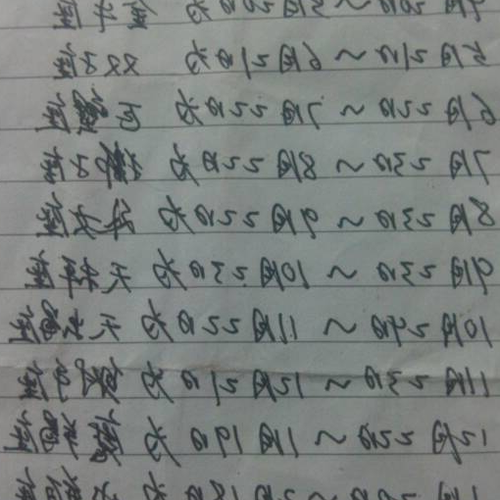 5月21日~6月21日为 双子座
6月22日~7月22日为 巨蟹座
7月23日~8月22日为 狮子座
8月23日~9月22日为 处女座
9月23日~10月23日为 天秤座
10月24日~11月22日为 天蝎座
11月23日~12月21日为 射手座
12月22日~1月19日为 摩羯座